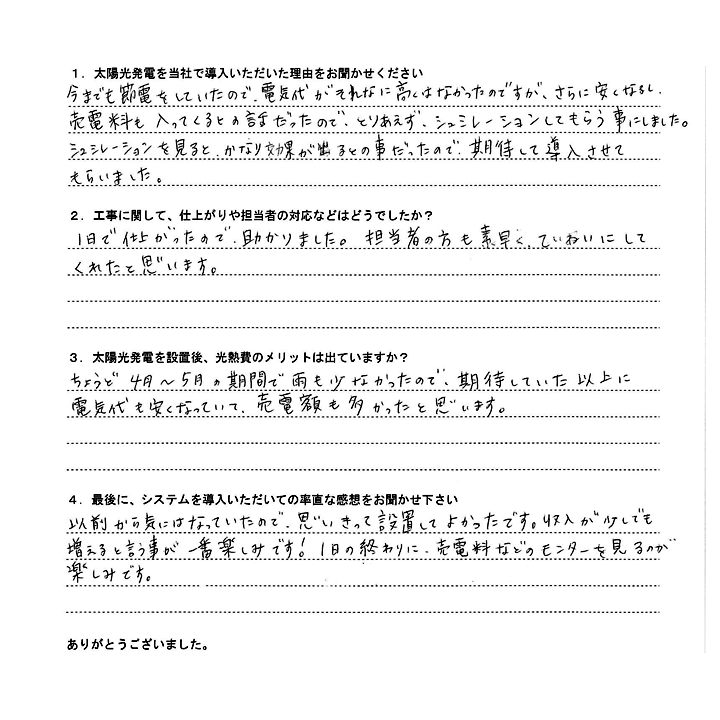 １．太陽光発電を当社で導入いただいた理由をお聞かせください
今までも節電をしていたので、電気代がそれなに高くはなかったのですが、さらに安くなるし、
売電料も入ってくるとの話だったので、とりあえず、シュミレーションしてもらう事にしました。
シュミレーションを見ると、かなり効果が出るとの事だったので、期待して導入させて
もらいました。
２．工事に関して、仕上がりや担当者の対応などはどうでしたか？
1日で仕上がったので、助かりました。担当者の方も素早く、ていねいにして
くれたと思います。
３．太陽光発電を設置後、光熱費のメリットは出ていますか？
ちょうど4月～5月の期間で雨も少なかったので、期待していた以上に
電気代も安くなっていて、売電額も多かったと思います。
４．最後に、システムを導入いただいての率直な感想をお聞かせ下さい
以前から気にはなっていたので、思いきって設置してよかったです。収入が少しでも
増えると言う事が一番楽しみです！1日の終わりに、売電料などのモニターを見るのが
楽しみです。
ありがとうございました。